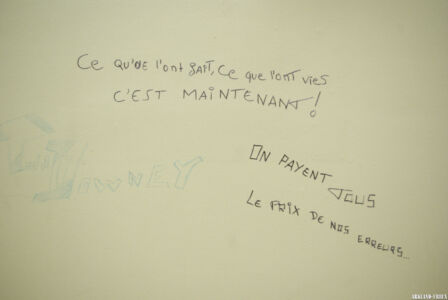 Ce qu'de l'ont fait, ce que l'ont vies
C'EST MAINTENANT!
ON PAYENT
TOUS
LE PRIX DE NOS ERREURS...